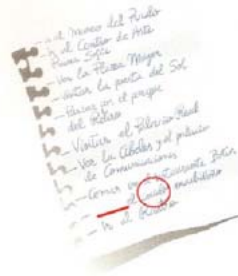 – Ir al Museo del Prado
– Ir al Centro de Arte
Reina Sofía
– Ver la Plaza Mayor
– Visitar la puerta del Sol
– Pasear en el parque
del Retiro
– Visitar el Palacio Real
– Ver la Cibeles y el palacio
de Comunicaciones
– Comer en Restaurante Botín
– el cocido madrileño
– Ir al